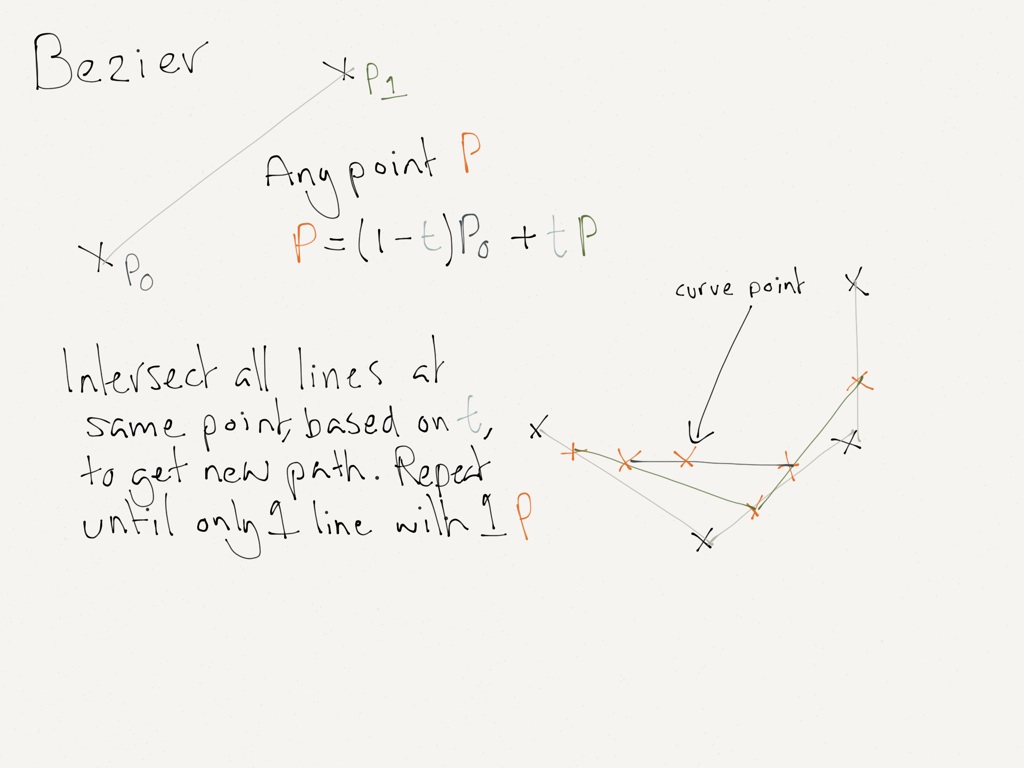 Bezier
P1
Any point P
P = (1-t)P0 + tP
P0
curve point
Intersect all lines at
same point, based on t,
to get new path. Repeat
until only 1 line with 1 P